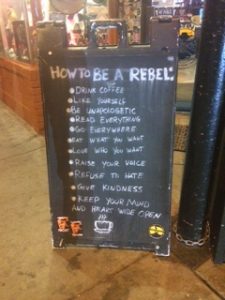 HOW TO BE A REBEL:
DRINK COFFEE
LIKE YOURSELF
BE UNAPOLOGETIC
READ EVERYTHING
GO EVERYWHERE
EAT WHAT YOU WANT
LOVE WHO YOU WANT
RAISE YOUR VOICE
REFUSE TO HATE
GIVE KINDNESS
KEEP YOUR MIND
AND HEART WIDE OPEN